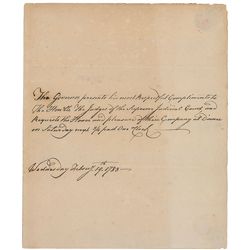 The Governor presents his most Respectful Compliments to
The Hon.ble The Judges of the Supreme Judicial Court, and
Requests the Honor and pleasure of their Company at Dinner
on Saturday next ½ past One o'Clock
Wednesday Feb.y 19.th 1783